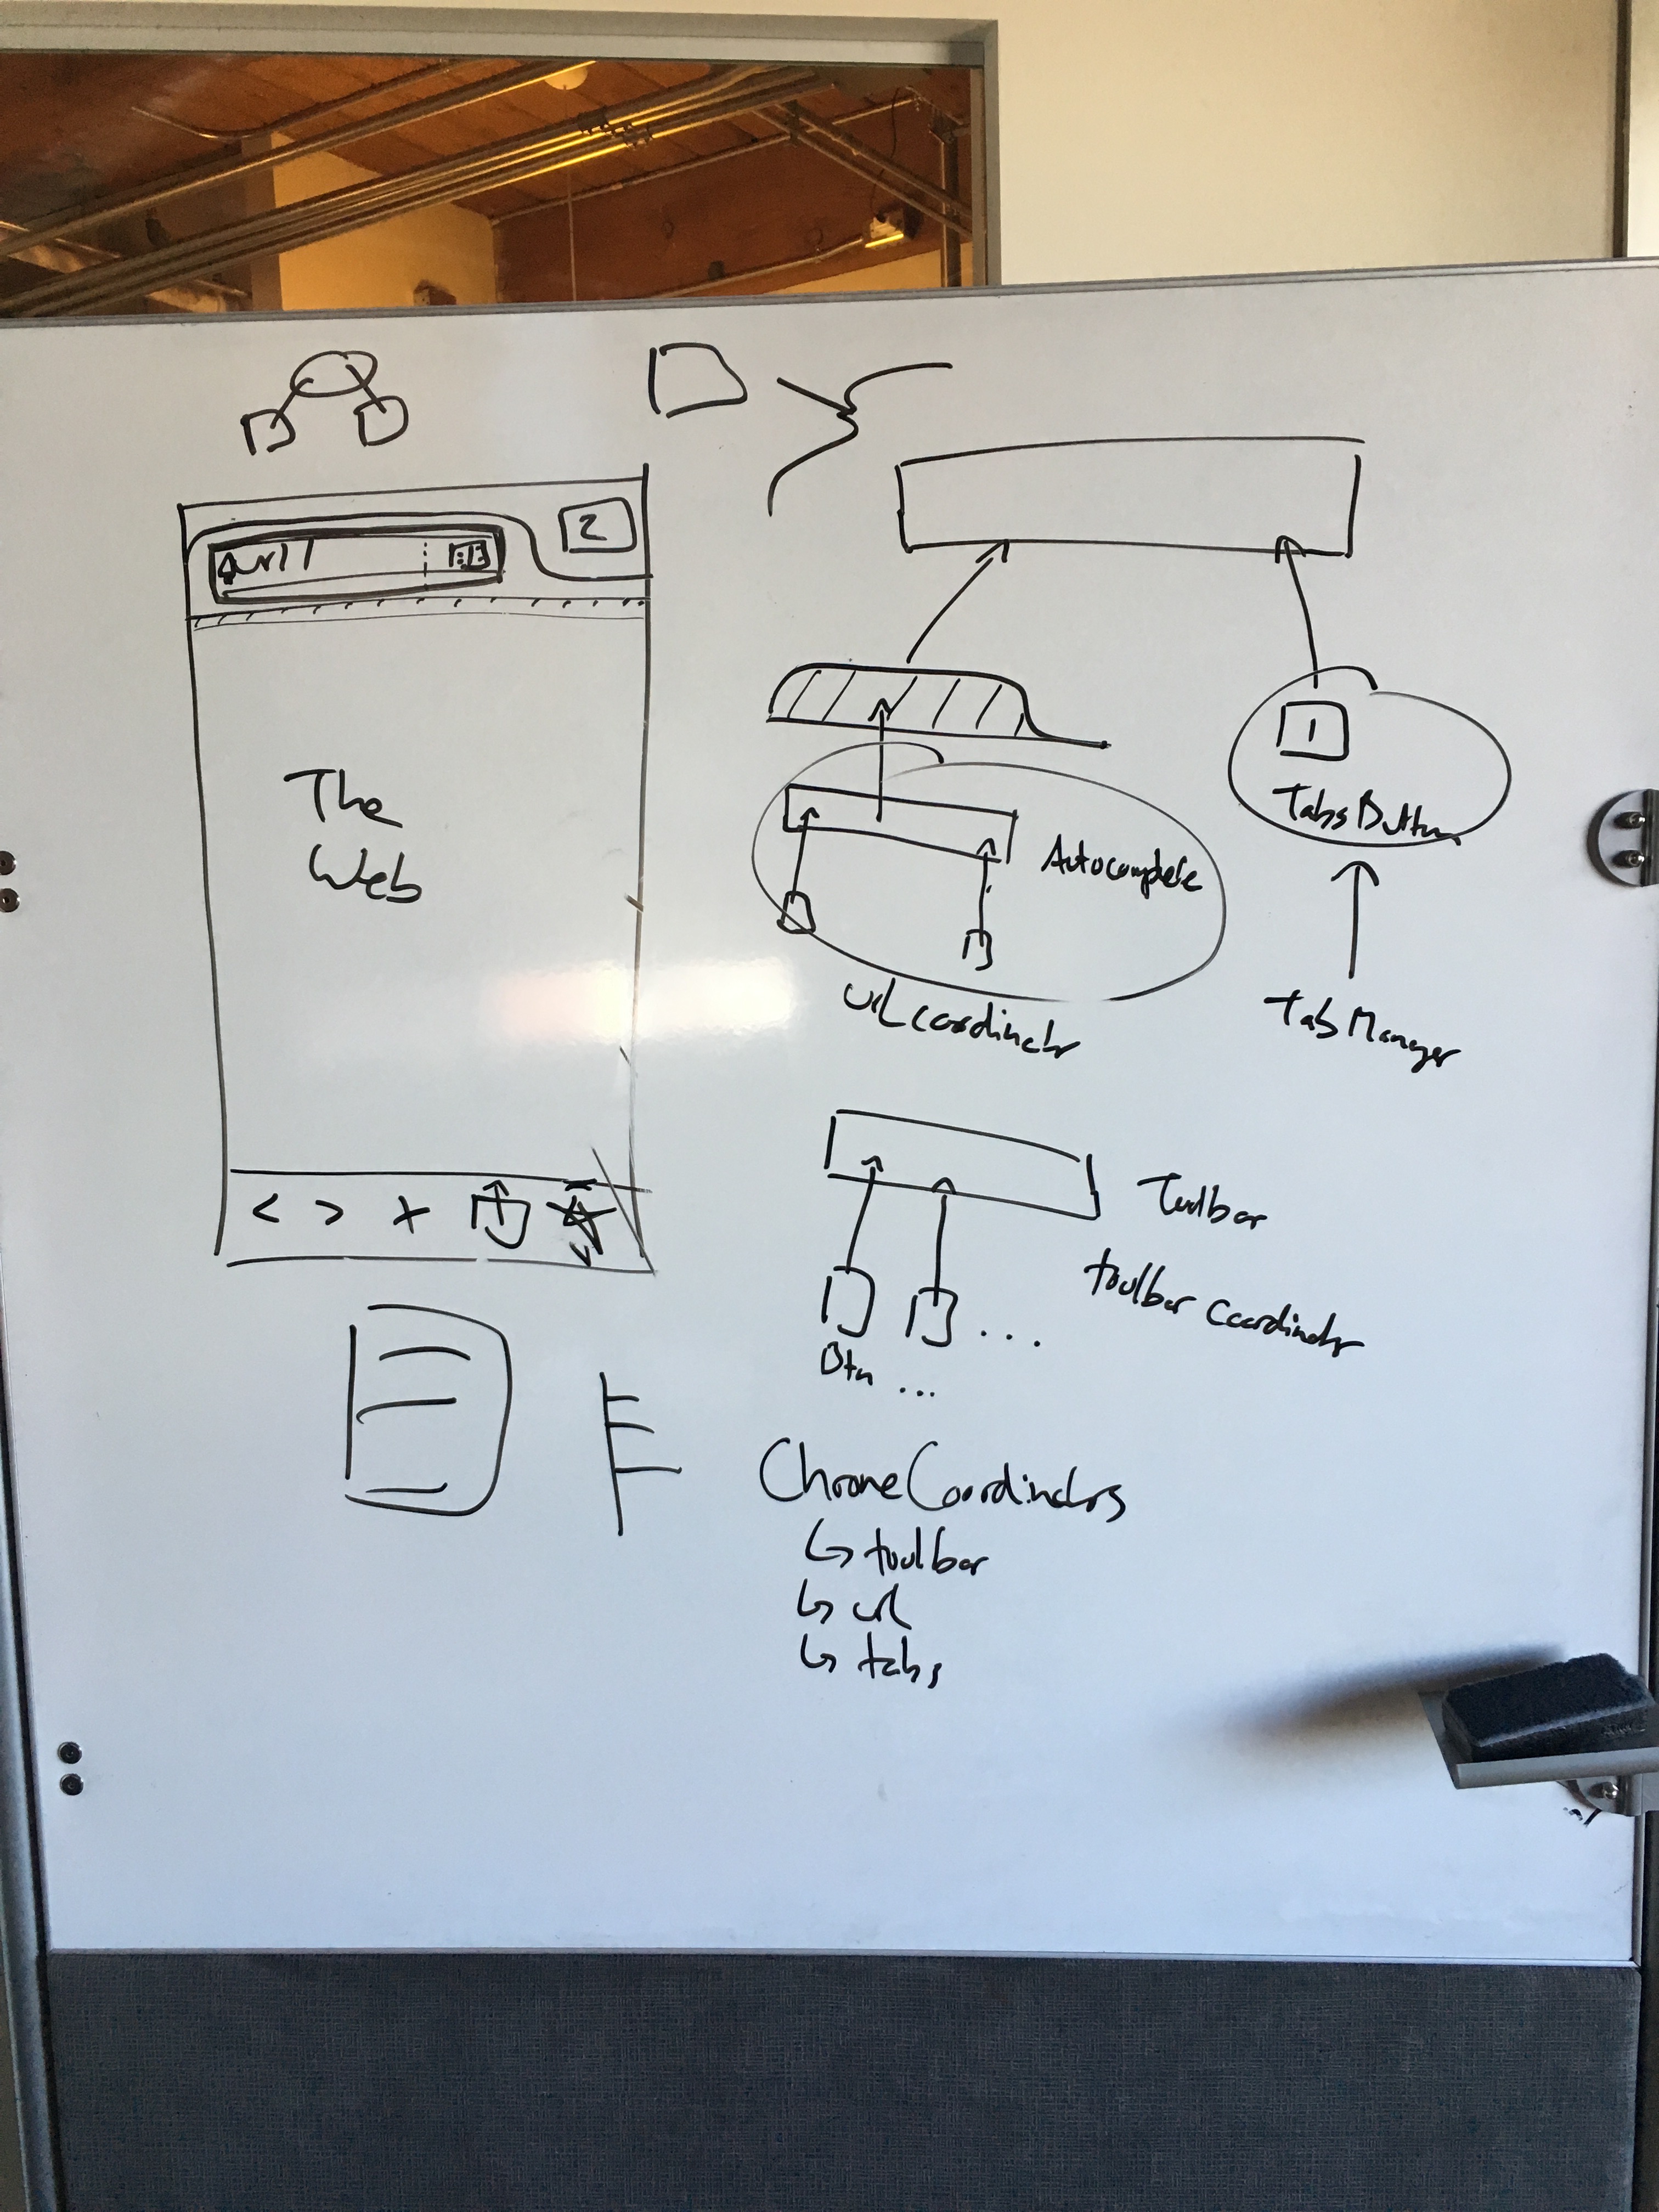 url
2
The
Web
< > +
1
TabsButton
Autocomplete
url coordinator
Tab Manager
Toolbar
toolbar coordinator
...
Btn ...
ChromeCoordinators
↳ toolbar
↳ url
↳ tabs